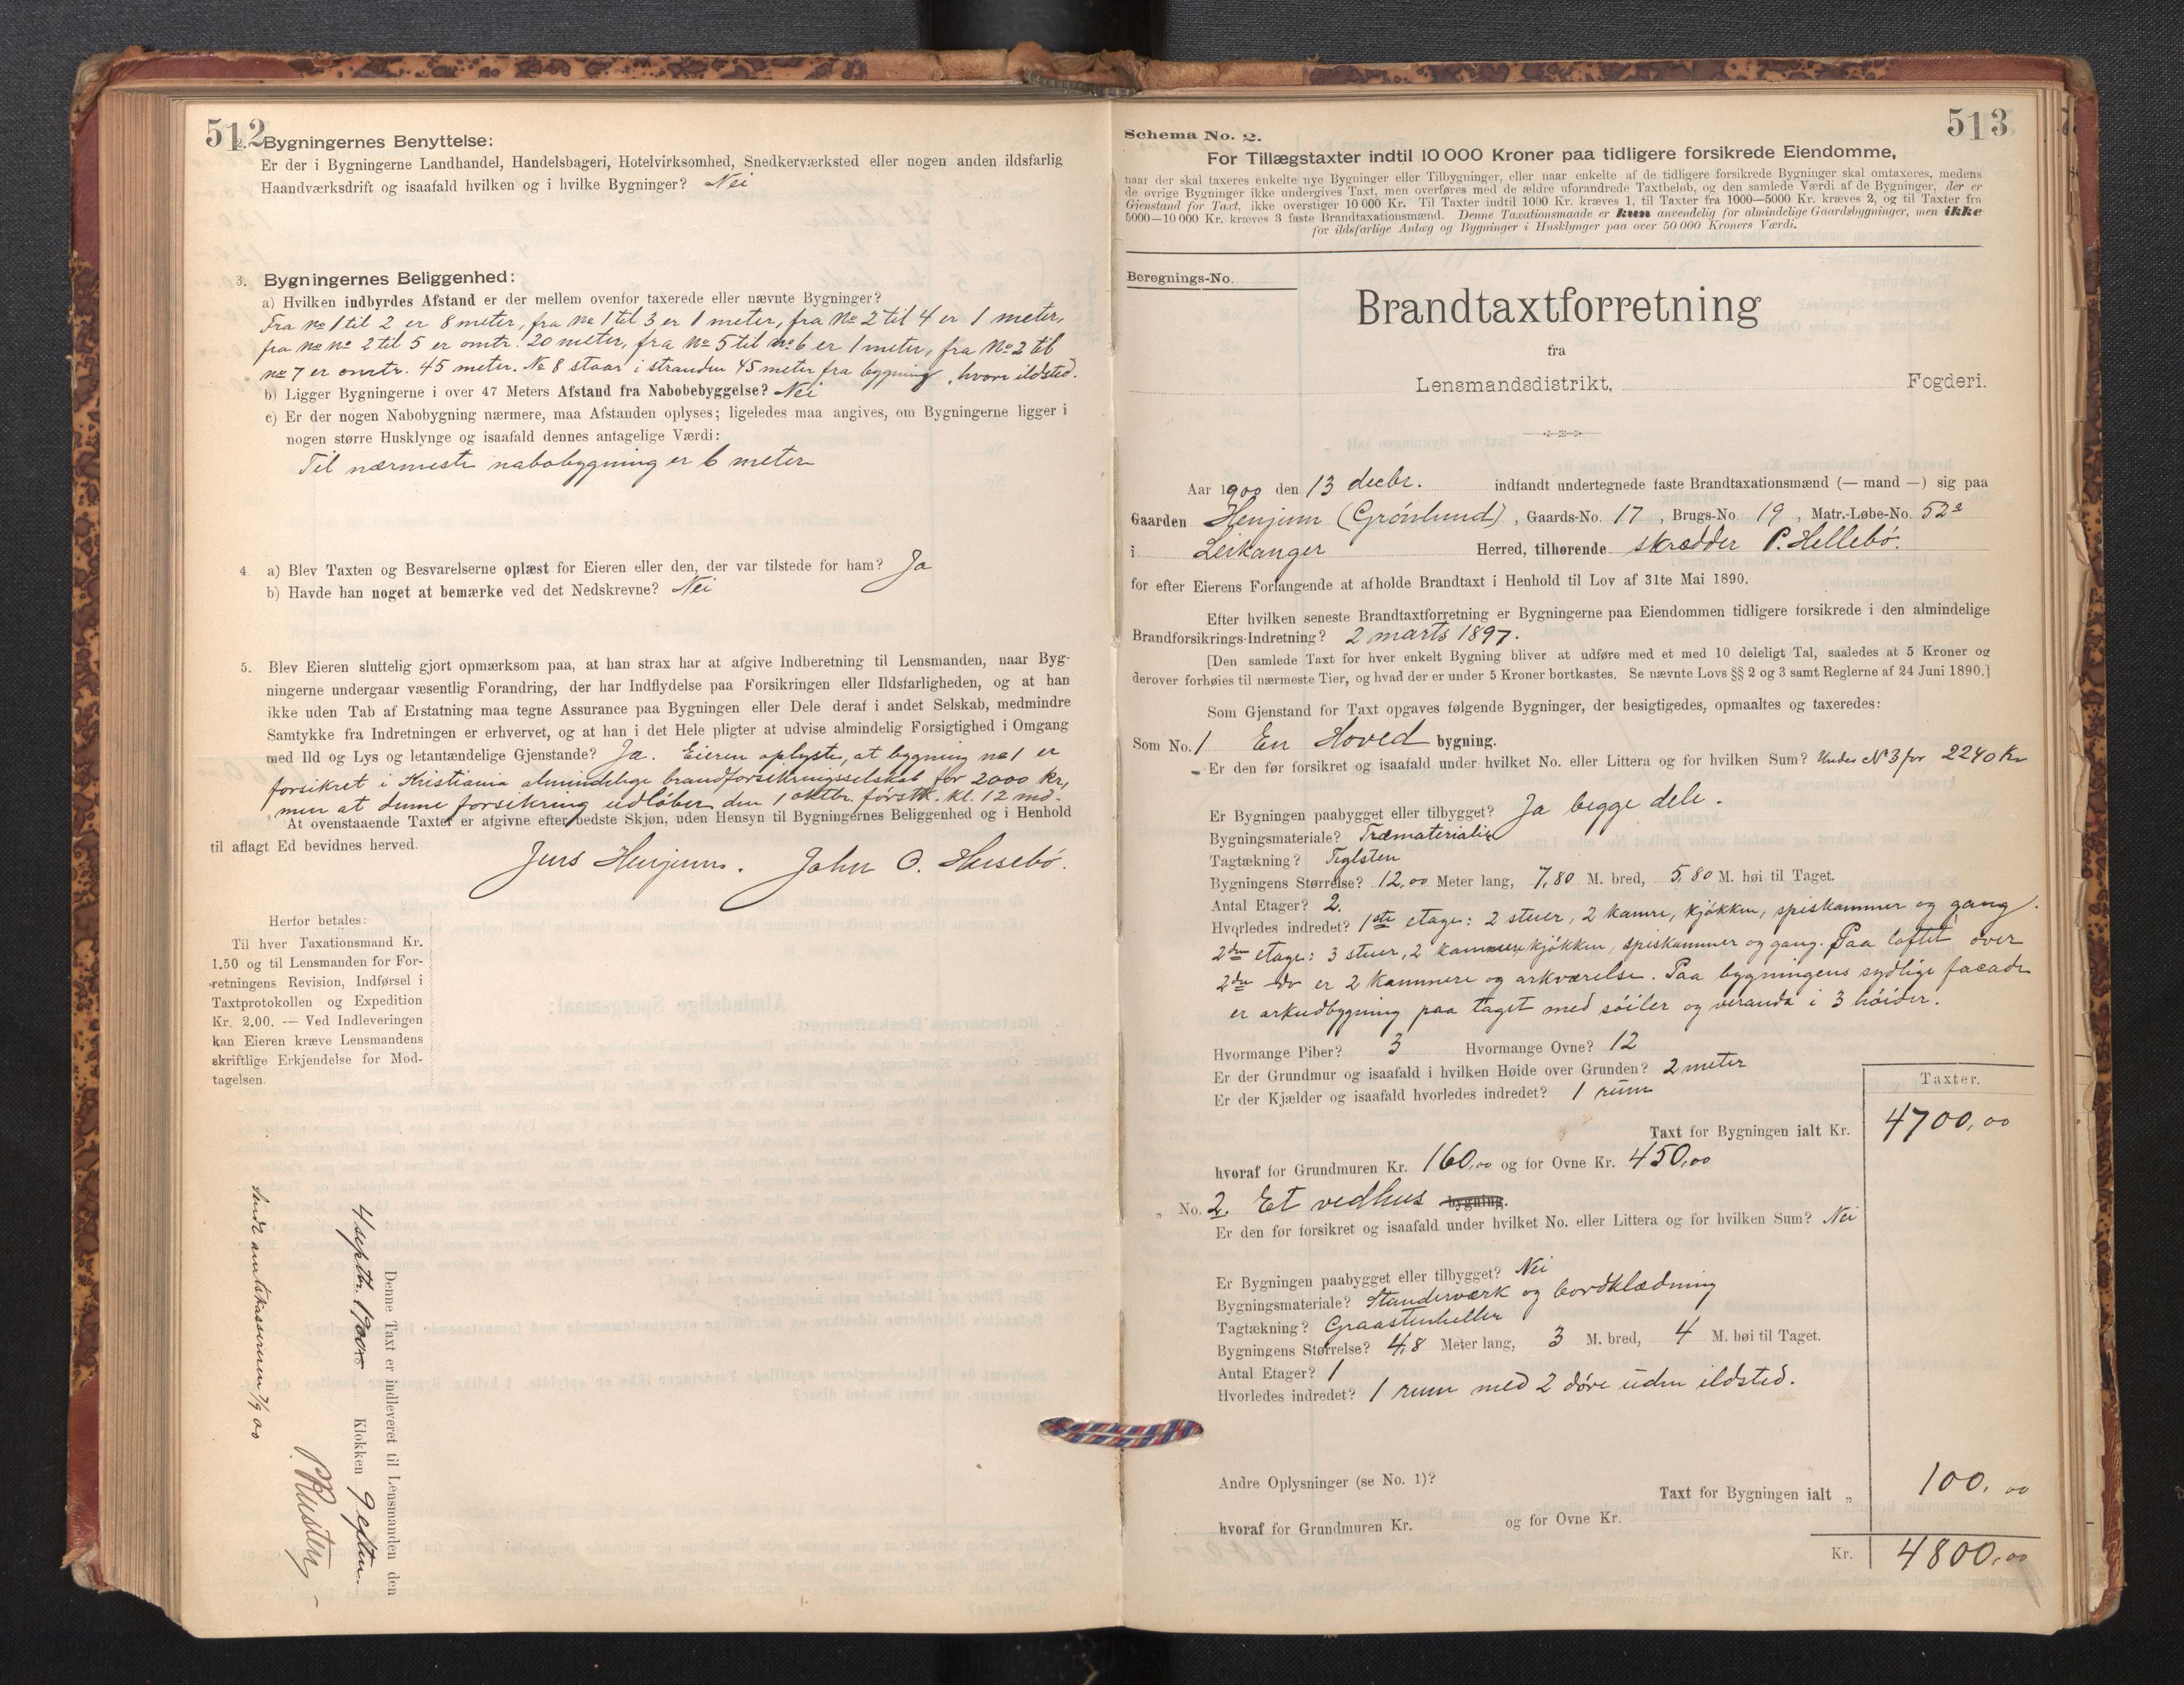 512
2. Bygningernes Benyttelse:
Er der i Bygningerne Landhandel, Handelsbageri, Hotelvirksomhed, Snedkerværksted eller nogen anden ildsfarlig
Haandværksdrift og isaafald hvilken og i hvilke Bygninger? Nei
3. Bygningernes Beliggenhed:
a) Hvilken indbyrdes Afstand er der mellem ovenfor taxerede eller nævnte Bygninger?
Fra No 1 til 2 er 8 meter, fra No 1 til 3 er 1 meter, fra No 2 til 4 er 1 meter,
fra No No 2 til 5 er omtr. 20 meter, fra No 5 til No 6 er 1 meter, fra No 2 til
No 7 er omtr. 45 meter. No 8 staar i stranden 45 meter fra bygning, hvori ildsted.
b) Ligger Bygningerne i over 47 Meters Afstand fra Nabobebyggelse? Nei
c) Er der nogen Nabobygning nærmere, maa Afstanden oplyses; ligeledes maa angives, om Bygningerne ligger i
nogen større Husklynge og isaafald dennes antagelige Værdi:
Til nærmeste nabobygning er 6 meter
4. a) Blev Taxten og Besvarelserne oplæst for Eieren eller den, der var tilstede for ham? Ja
b) Havde han noget at bemærke ved det Nedskrevne? Nei
5. Blev Eieren sluttelig gjort opmærksom paa, at han strax har at afgive Indberetning til Lensmanden, naar Byg-
ningerne undergaar væsentlig Forandring, der har Indflydelse paa Forsikringen eller Ildsfarligheden, og at han
ikke uden Tab af Erstatning maa tegne Assurance paa Bygningen eller Dele deraf i andet Selskab, medmindre
Samtykke fra Indretningen er erhvervet, og at han i det Hele pligter at udvise almindelig Forsigtighed i Omgang
med Ild og Lys og letantændelige Gjenstande? Ja. Eieren oplyste, at bygning no 1 er
forsikret i Kristiania almindelige brandforsikringsselskab for 2000 kr,
men at denne forsikring udløber den 1 oktbr. førstk. kl. 12 md.
At ovenstaaende Taxter er afgivne efter bedste Skjøn, uden Hensyn til Bygningernes Beliggenhed og i Henhold
til aflagt Ed bevidnes herved.
Jens Henjum. John O. Husebø.
Herfor betales:
Til hver Taxationsmand Kr.
1.50 og til Lensmanden for For-
retningens Revision, Indførsel i
Taxtprotokollen og Expedition
Kr. 2.00. — Ved Indleveringen
kan Eieren kræve Lensmandens
skriftlige Erkjendelse for Mod-
tagelsen.
Denne Taxt er indleveret til Lensmanden den
4 septbr. 1900 Klokken 9 eftm.
Sendt amtskassereren 7/9 00
513
Schema No. 2.
For Tillægstaxter indtil 10 000 Kroner paa tidligere forsikrede Eiendomme,
naar der skal taxeres enkelte nye Bygninger eller Tilbygninger, eller naar enkelte af de tidligere forsikrede Bygninger skal omtaxeres, medens
de øvrige Bygninger ikke undergives Taxt, men overføres med de ældre uforandrede Taxtbeløb, og den samlede Værdi af de Bygninger, der er
Gjenstand for Taxt, ikke overstiger 10 000 Kr. Til Taxter indtil 1000 Kr. kræves 1, til Taxter fra 1000—5000 Kr. kræves 2, og til Taxter fra
5000—10 000 Kr. kræves 3 faste Brandtaxationsmænd. Denne Taxationsmaade er kun anvendelig for almindelige Gaardsbygninger, men ikke
for ildsfarlige Anlæg og Bygninger i Husklynger paa over 50 000 Kroners Værdi.
Beregnings-No.
Brandtaxtforretning
fra
Lensmandsdistrikt, Fogderi.
Aar 1900 den 13 decbr. indfandt undertegnede faste Brandtaxationsmænd (— mand —) sig paa
Gaarden Henjum (Grønlund), Gaards-No. 17, Brugs-No. 19, Matr.-Løbe-No. 52a
i Leikanger Herred, tilhørende skrædder P. Hellebø.
for efter Eierens Forlangende at afholde Brandtaxt i Henhold til Lov af 31te Mai 1890.
Efter hvilken seneste Brandtaxtforretning er Bygningerne paa Eiendommen tidligere forsikrede i den almindelige
Brandforsikrings-Indretning? 2 marts 1897.
[Den samlede Taxt for hver enkelt Bygning bliver at udføre med et med 10 deleligt Tal, saaledes at 5 Kroner og
derover forhøies til nærmeste Tier, og hvad der er under 5 Kroner bortkastes. Se nævnte Lovs §§ 2 og 3 samt Reglerne af 24 Juni 1890.]
Som Gjenstand for Taxt opgaves følgende Bygninger, der besigtigedes, opmaaltes og taxeredes:
Som No. 1 En Hoved bygning.
Er den før forsikret og isaafald under hvilket No. eller Littera og for hvilken Sum? Under No 3 for 2240 Kr
Er Bygningen paabygget eller tilbygget? Ja begge dele.
Bygningsmateriale? Træmaterialier
Tagtækning? Teglsten
Bygningens Størrelse? 12,00 Meter lang, 7,80 M. bred, 5,80 M. høi til Taget.
Antal Etager? 2.
Hvorledes indredet? 1ste etage: 2 stuer, 2 kamre, kjøkken, spiskammer og gang.
2den etage: 3 stuer, 2 kammere kjøkken, spiskammer og gang. Paa loftet over
2den do er 2 kammere og arkværelse. Paa bygningens sydlige facade
er arkudbygning paa taget med søiler og veranda i 3 høider.
Hvormange Piber? 3 Hvormange Ovne? 12
Er der Grundmur og isaafald i hvilken Høide over Grunden? 2 meter
Er der Kjælder og isaafald hvorledes indredet? 1 rum
Taxter.
Taxt for Bygningen ialt Kr. 4700,00
hvoraf for Grundmuren Kr. 160,00 og for Ovne Kr. 450,00
„ No. 2. Et vedhus bygning.
Er den før forsikret og isaafald under hvilket No. eller Littera og for hvilken Sum? Nei
Er Bygningen paabygget eller tilbygget? Nei
Bygningsmateriale? Standerværk og bordklædning
Tagtækning? Graastenheller
Bygningens Størrelse? 4,8 Meter lang, 3 M. bred, 4 M. høi til Taget.
Antal Etager? 1
Hvorledes indredet? 1 rum med 2 døre uden ildsted.
Andre Oplysninger (se No. 1)?
Taxt for Bygningen ialt „ 100,00
hvoraf for Grundmuren Kr. og for Ovne Kr.
Kr. 4800,00